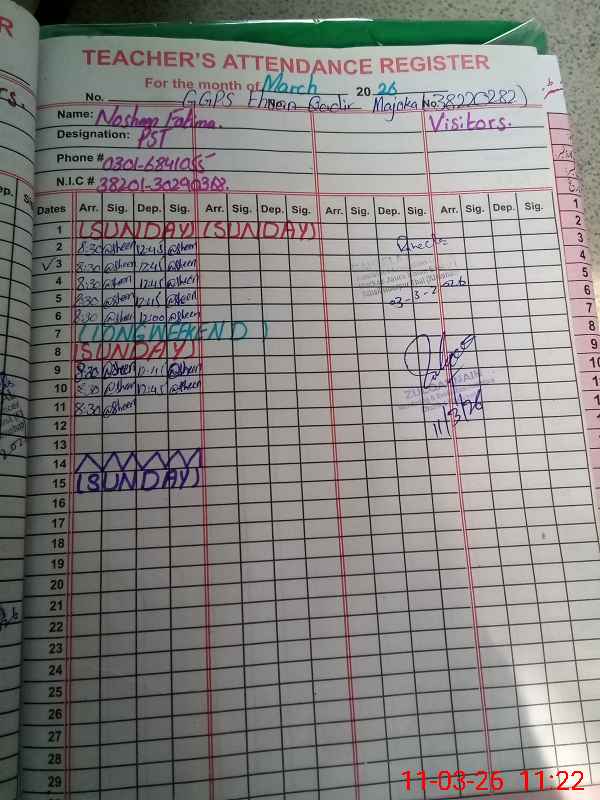 TEACHER'S ATTENDANCE REGISTER
For the month of March 2026
No. GGPS Ehsan Qadir Majoka No. 38220282)
Name: Nosheen Fatima. Visitors.
Designation: PST
Phone # 0301-6841055
N.I.C # 38201-30290368.
Dates Arr. Sig. Dep. Sig. Arr. Sig. Dep. Sig. Arr. Sig. Dep. Sig. Arr. Sig. Dep. Sig.
1 (SUNDAY) (SUNDAY)
2 8:30 @sheen 12:45 @sheen
✓3 8:30 @sheen 12:45 @sheen
4 8:30 @sheen 12:45 @sheen
5 8:30 @sheen 12:45 @sheen
03-3-2026
6 8:30 @sheen 12:00 @sheen
7 (LONG WEEKEND)
8 (SUNDAY)
9 8:30 @sheen 12:45 @sheen
10 8:30 @sheen 12:45 @sheen
11 8:30 @sheen
11/3/26
12
13
14
15 (SUNDAY)
16
17
18
19
20
21
22
23
24
25
26
27
28
29
11-03-26 11:22